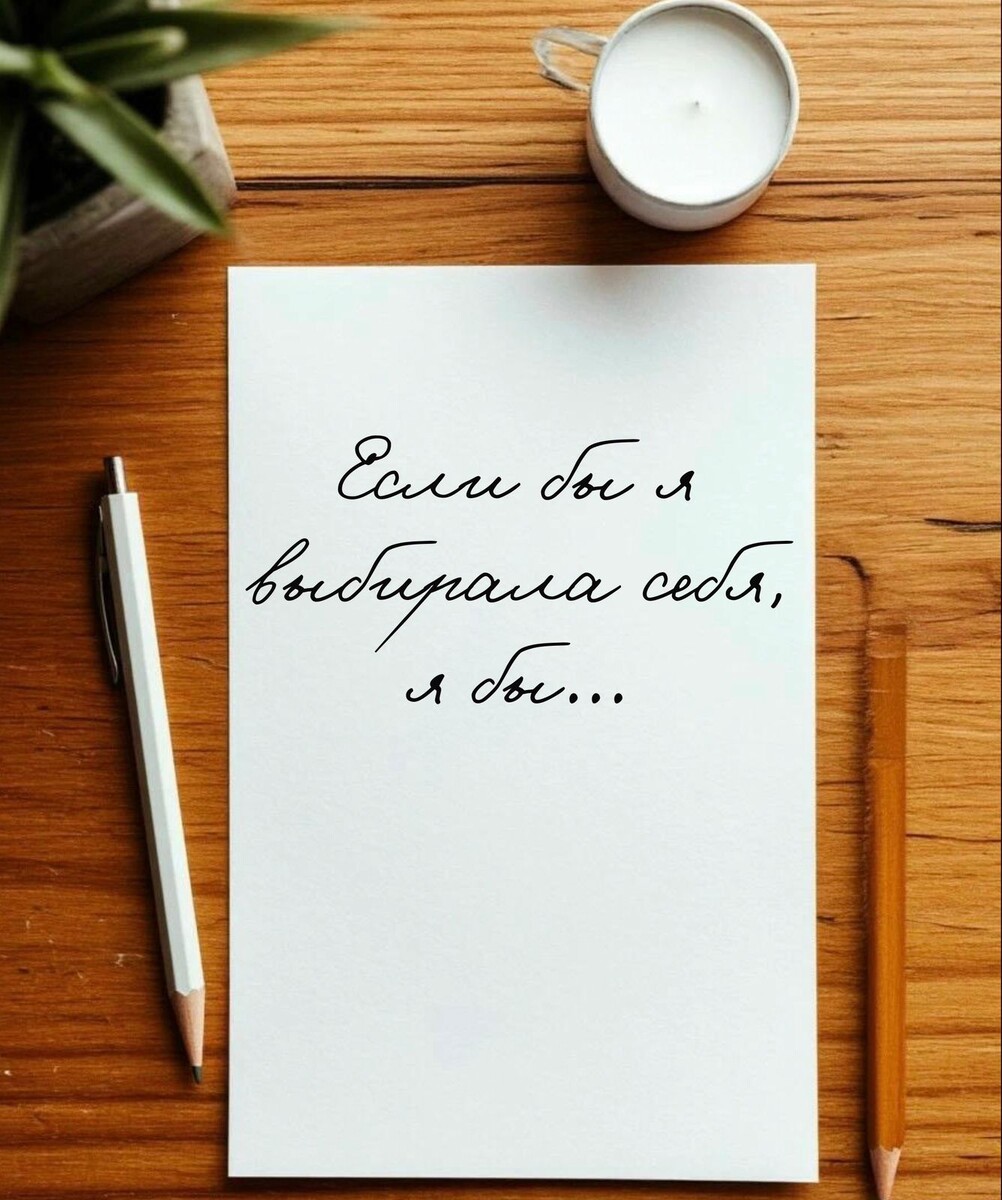 Если бы я
выбирала себя,
я бы...